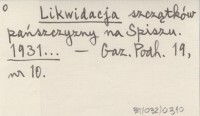 Likwidacja szczątków
pańszczyzny na Spiszu.
1931... — Gaz. Podh. 19,
nr 10.